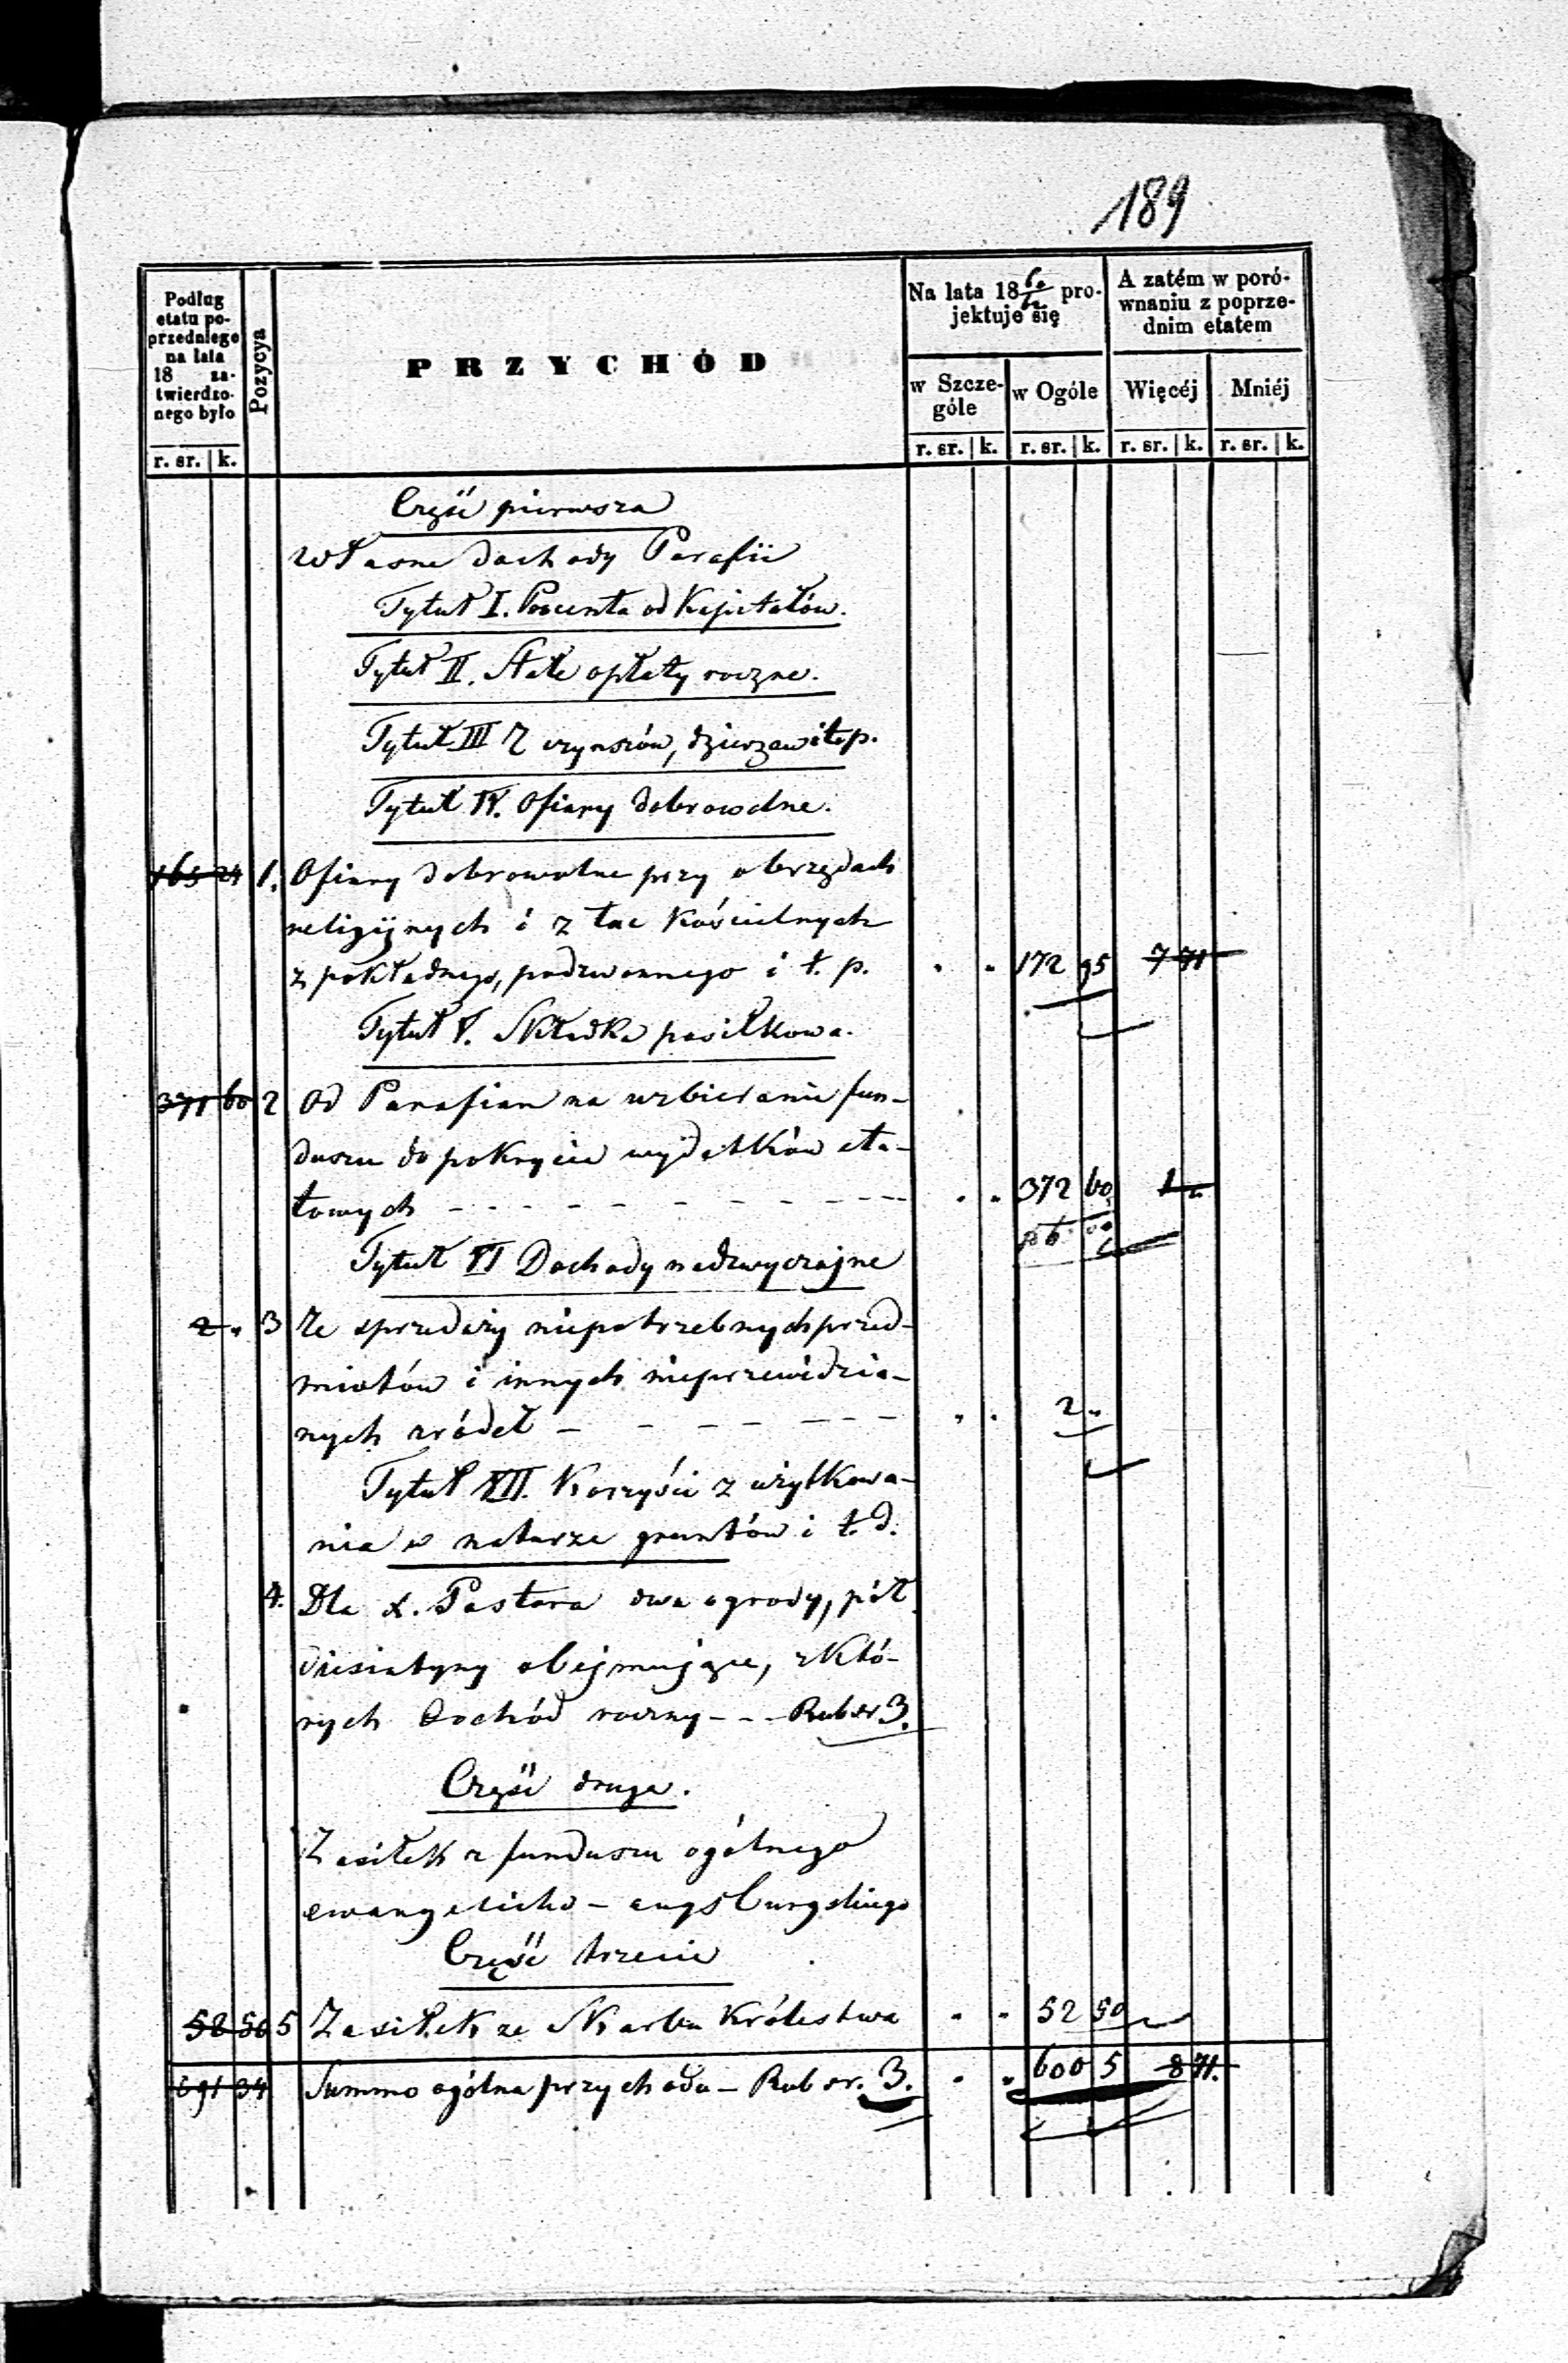 189
Podług etatu poprzedniego na lata 18 zatwierdzonego było
Pozycya
PRZYCHÓD
Na lata 18 60/62 projektuje się
A zatém w porównaniu z poprzednim etatem
w Szczególe
w Ogóle
Więcéj
Mniéj
r. sr. | k.
r. sr. | k.
r. sr. | k.
r. sr. | k.
r. sr. | k.
Część pierwsza
Własne dochody Parafii
Tytuł I. Procenta od Kapitałów.
Tytuł II. Stałe opłaty roczne.
Tytuł III Z czynszów, dzierzaw itp.
Tytuł IV. Ofiary dobrowolne.
165 24 1. Ofiary dobrowolne przy obrzędach
religijnych i z tac Kościelnych
z pokładnego, podzwonnego i t. p. " " 172 95 7 71
Tytuł V. Składka posiłkowa.
371 60 2 Od Parafian na uzbieranie fun-
duszu do pokrycia wydatków eta-
towych - - - - - - - - " " 372 60 1 "
Tytuł VI Dochody nadzwyczajne
2 " 3 Ze sprzedaży niepotrzebnych przed-
miotów i innych nieprzewidzia-
nych zródeł - - - - - - - " " 2 "
Tytuł VII. Korzyści z użytkowa-
nia w naturze gruntów i t. d.
4. Dla X. Pastora dwa ogrody, pół
dziesiatyny obejmujące, z któ-
rych dochód roczny - - - Rub sr 3.
Część druga.
Zasiłek z funduszu ogólnego
ewangelicko - augsburgskiego
Część trzecia
52 50 5 Zasiłek ze Skarbu Królestwa " " 52 50
591 34 Summa ogólna przychodu - Rub sr. 3. " " 600 5 8 71.